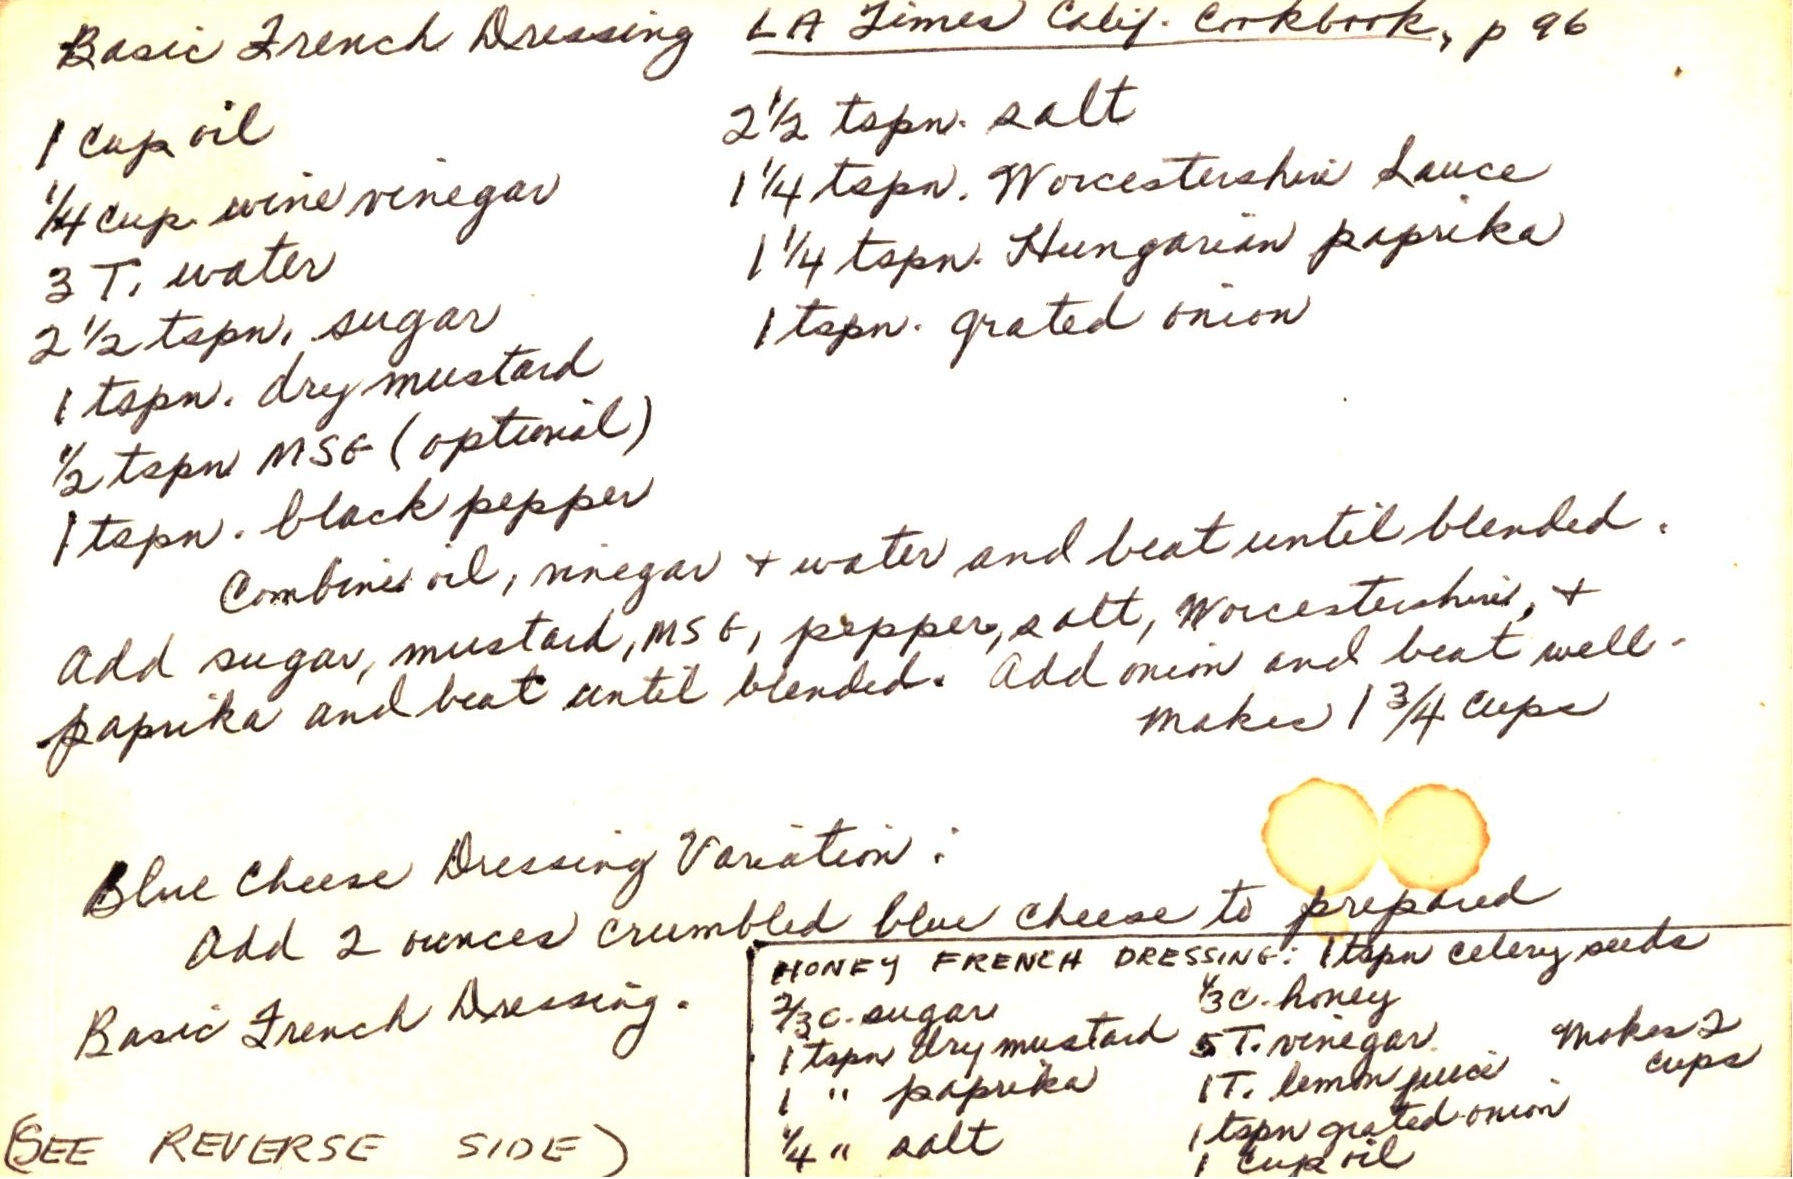 Basic French Dressing LA Times Calif. Cookbook, p 96
1 cup oil
1/4 cup wine vinegar
3 T. water
2 1/2 tspn. sugar
1 tspn. dry mustard
1/2 tspn MSG (optional)
1 tspn. black pepper
2 1/2 tspn. salt
1 1/4 tspn. Worcestershire Sauce
1 1/4 tspn. Hungarian paprika
1 tspn. grated onion
Combine oil, vinegar + water and beat until blended.
Add sugar, mustard, MSG, pepper, salt, Worcestershire, +
paprika and beat until blended. Add onion and beat well.
Makes 1 3/4 cups
Blue Cheese Dressing Variation:
Add 2 ounces crumbled blue cheese to prepared
Basic French Dressing.
(SEE REVERSE SIDE)
HONEY FRENCH DRESSING:
2/3 c. sugar
1 tspn dry mustard
1 " paprika
1/4 " salt
1 tspn celery seeds
1/3 c. honey
5 T. vinegar
1 T. lemon juice
1 tspn grated onion
1 cup oil
Makes 2
cups